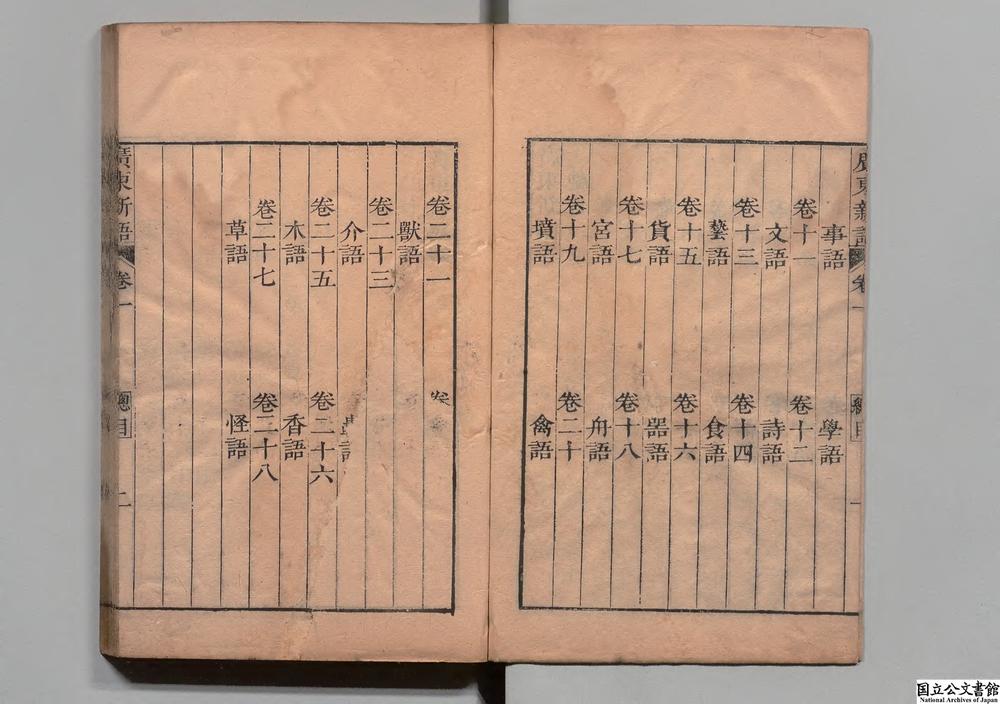 廣東新語 卷一 總目 一
事語 學語
卷十一 卷十二
文語 詩語
卷十三 卷十四
藝語 食語
卷十五 卷十六
貨語 器語
卷十七 卷十八
宮語 舟語
卷十九 卷二十
墳語 禽語
卷二十一
獸語
卷二十三
介語
卷二十五 卷二十六
木語 香語
卷二十七 卷二十八
草語 怪語
廣東新語 卷一 總目 二
国立公文書館
National Archives of Japan